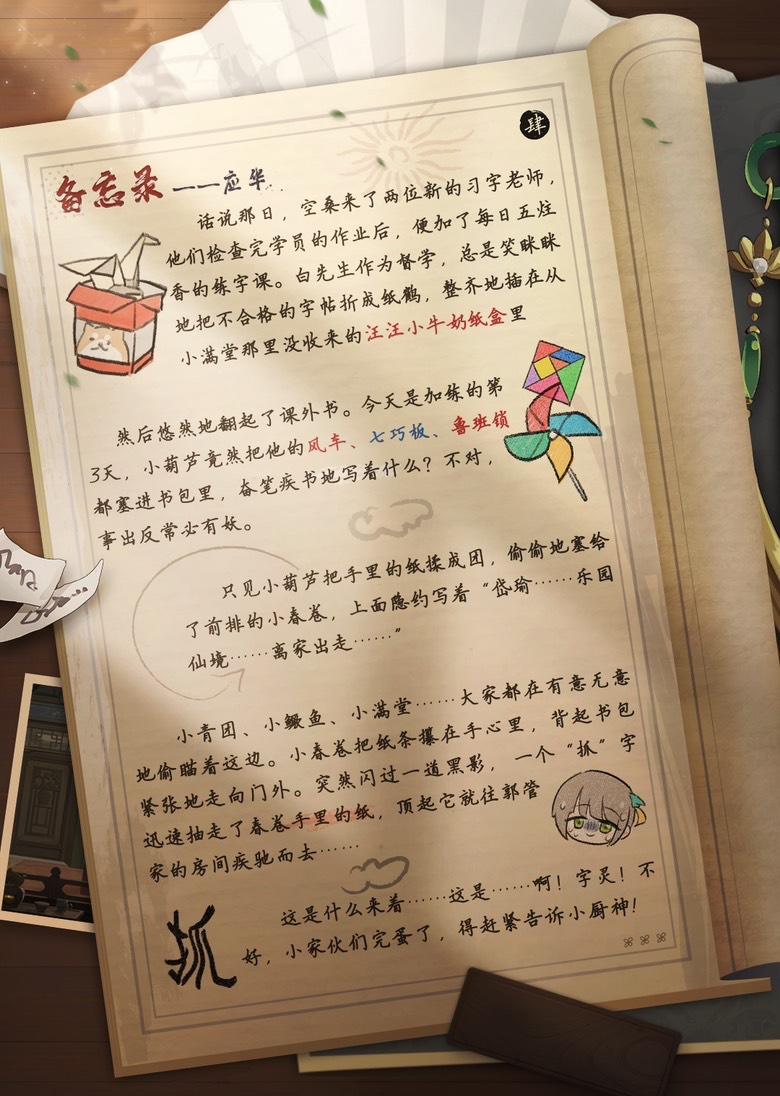 肆
备忘录——应华
话说那日，空桑来了两位新的习字老师，
他们检查完学员的作业后，便加了每日五炷
香的练字课。白先生作为督学，总是笑眯眯
地把不合格的字帖折成纸鹤，整齐地插在从
小满堂那里没收来的汪汪小牛奶纸盒里
然后悠然地翻起了课外书。今天是加练的第
3天，小葫芦竟然把他的风车、七巧板、鲁班锁
都塞进书包里，奋笔疾书地写着什么？不对，
事出反常必有妖。
只见小葫芦把手里的纸揉成团，偷偷地塞给
了前排的小春卷，上面隐约写着“岱瑜……乐园
仙境……离家出走……”
小青团、小鳜鱼、小满堂……大家都在有意无意
地偷瞄着这边。小春卷把纸条攥在手心里，背起书包
紧张地走向门外。突然闪过一道黑影，一个“抓”字
迅速抽走了春卷手里的纸，顶起它就往郭管
家的房间疾驰而去……
这是什么来着……这是……啊！字灵！不
好，小家伙们完蛋了，得赶紧告诉小厨神！
抓